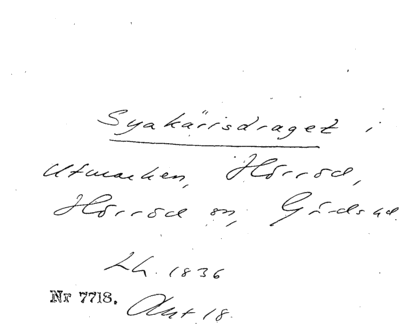 Syakärrsdraget i
Utmarken, Hörröd,
Hörröd sn, Gärds hd.
Lh. 1836
Nr 7718. Akt 18.